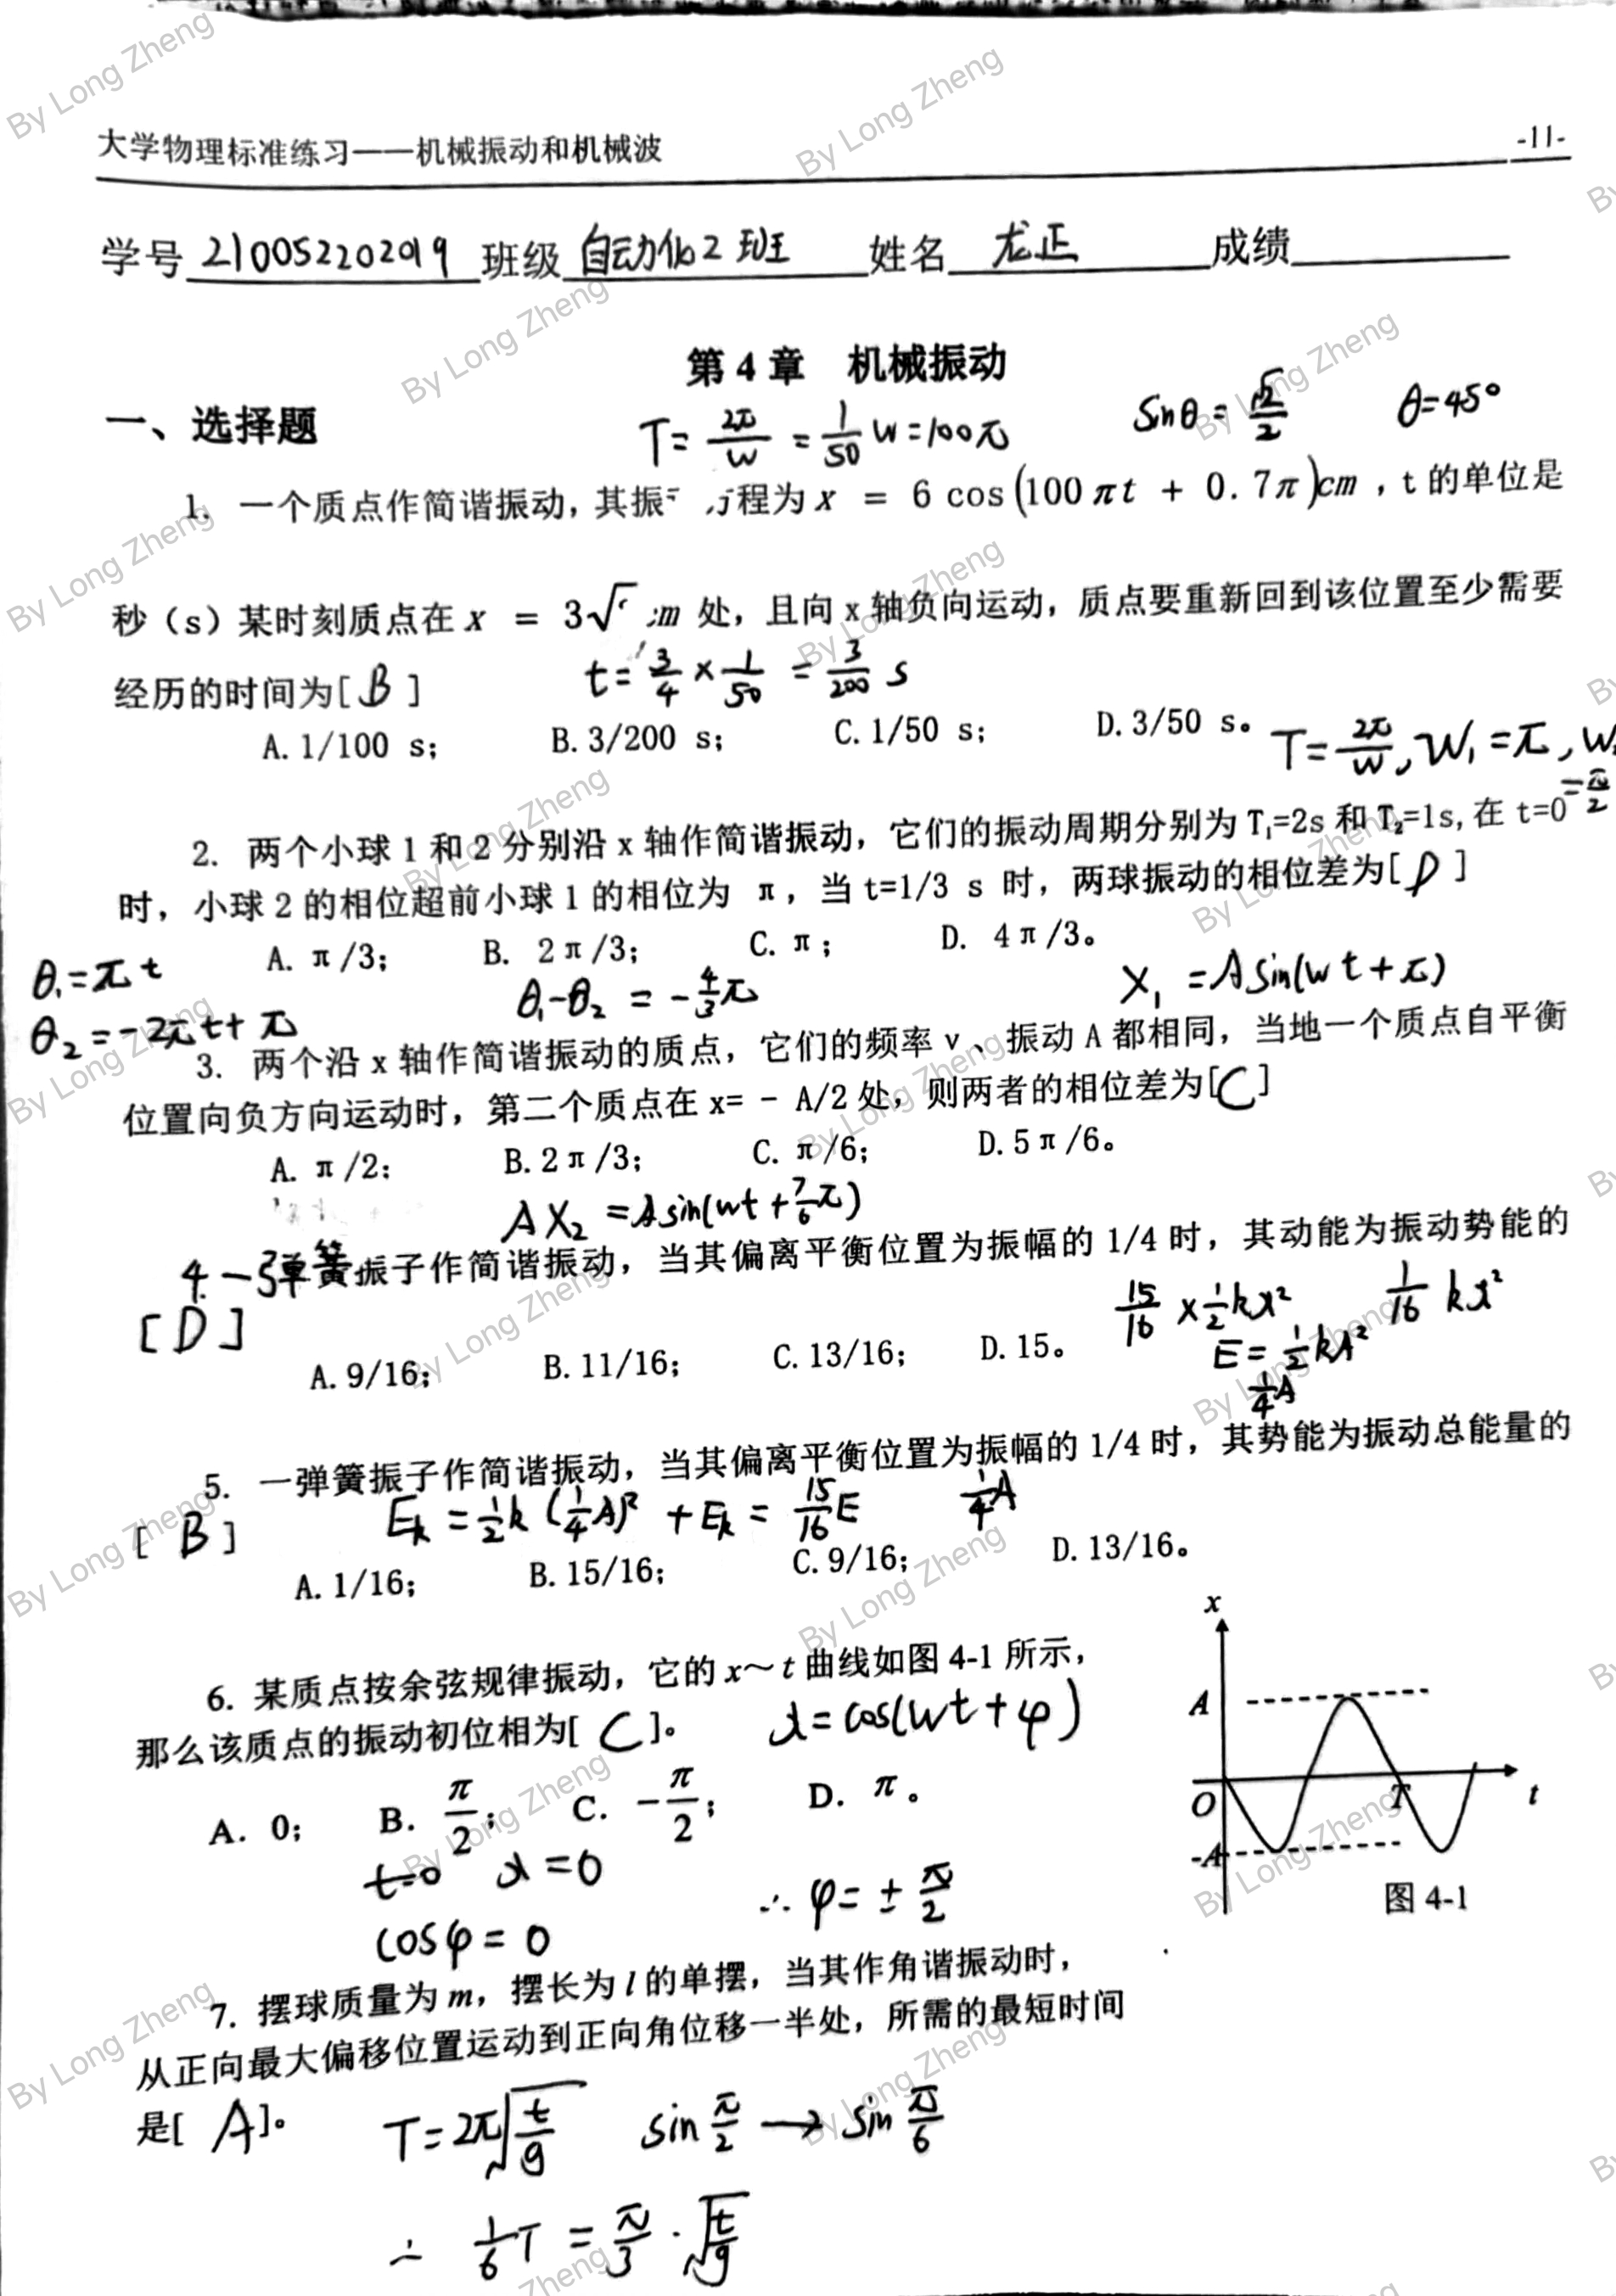 大学物理标准练习——机械振动和机械波 -11-
学号 210052202019 班级 自动化2班 姓名 龙正 成绩
第 4 章 机械振动
一、选择题
T = 2π/W = 1/50 W=100π sinθ = √2/2 θ=45°
1. 一个质点作简谐振动, 其振 方程为 x = 6 cos(100πt + 0.7π)cm , t 的单位是
秒（s）某时刻质点在 x = 3√ m 处，且向 x 轴负向运动，质点要重新回到该位置至少需要
t = 3/4 × 1/50 = 3/200 s
经历的时间为[ B ]
A. 1/100 s; B. 3/200 s; C. 1/50 s; D. 3/50 s。
T = 2π/W, W₁ = π, W
= π/2
2. 两个小球 1 和 2 分别沿 x 轴作简谐振动，它们的振动周期分别为 T₁=2s 和 T₂=1s, 在 t=0
时，小球 2 的相位超前小球 1 的相位为 π，当 t=1/3 s 时，两球振动的相位差为[ D ]
A. π/3; B. 2π/3; C. π; D. 4π/3。
θ₁=πt θ₁-θ₂ = -4/3π X₁ = Asin(wt+π)
θ₂=-2πt+π
3. 两个沿 x 轴作简谐振动的质点，它们的频率 ν、振动 A 都相同，当地一个质点自平衡
位置向负方向运动时，第二个质点在 x= - A/2 处，则两者的相位差为[C]
A. π/2: B. 2π/3; C. π/6; D. 5π/6。
AX₂ = Asin(wt+7/6π)
4. 一弹簧振子作简谐振动，当其偏离平衡位置为振幅的 1/4 时，其动能为振动势能的
[ D ]
15/16 × 1/2kx² 1/16 kx²
E = 1/2kA²
1/4A
A. 9/16; B. 11/16; C. 13/16; D. 15。
5. 一弹簧振子作简谐振动，当其偏离平衡位置为振幅的 1/4 时，其势能为振动总能量的
[ B ]
Ek = 1/2k(1/4A)² + Ek = 15/16E 1/4A
A. 1/16; B. 15/16; C. 9/16; D. 13/16。
6. 某质点按余弦规律振动，它的 x～t 曲线如图 4-1 所示，
那么该质点的振动初位相为[ C ]。
x=cos(wt+φ)
A. 0; B. π/2; C. -π/2; D. π。
t=0 x=0
cosφ=0 ∴ φ=±π/2
x
A
O T t
-A
图 4-1
7. 摆球质量为 m，摆长为 l 的单摆，当其作角谐振动时，
从正向最大偏移位置运动到正向角位移一半处，所需的最短时间
是[ A ]。
T=2π√(t/g) sin π/2 → sin π/6
∴ 1/6T = π/3·√(t/g)
By Long Zheng